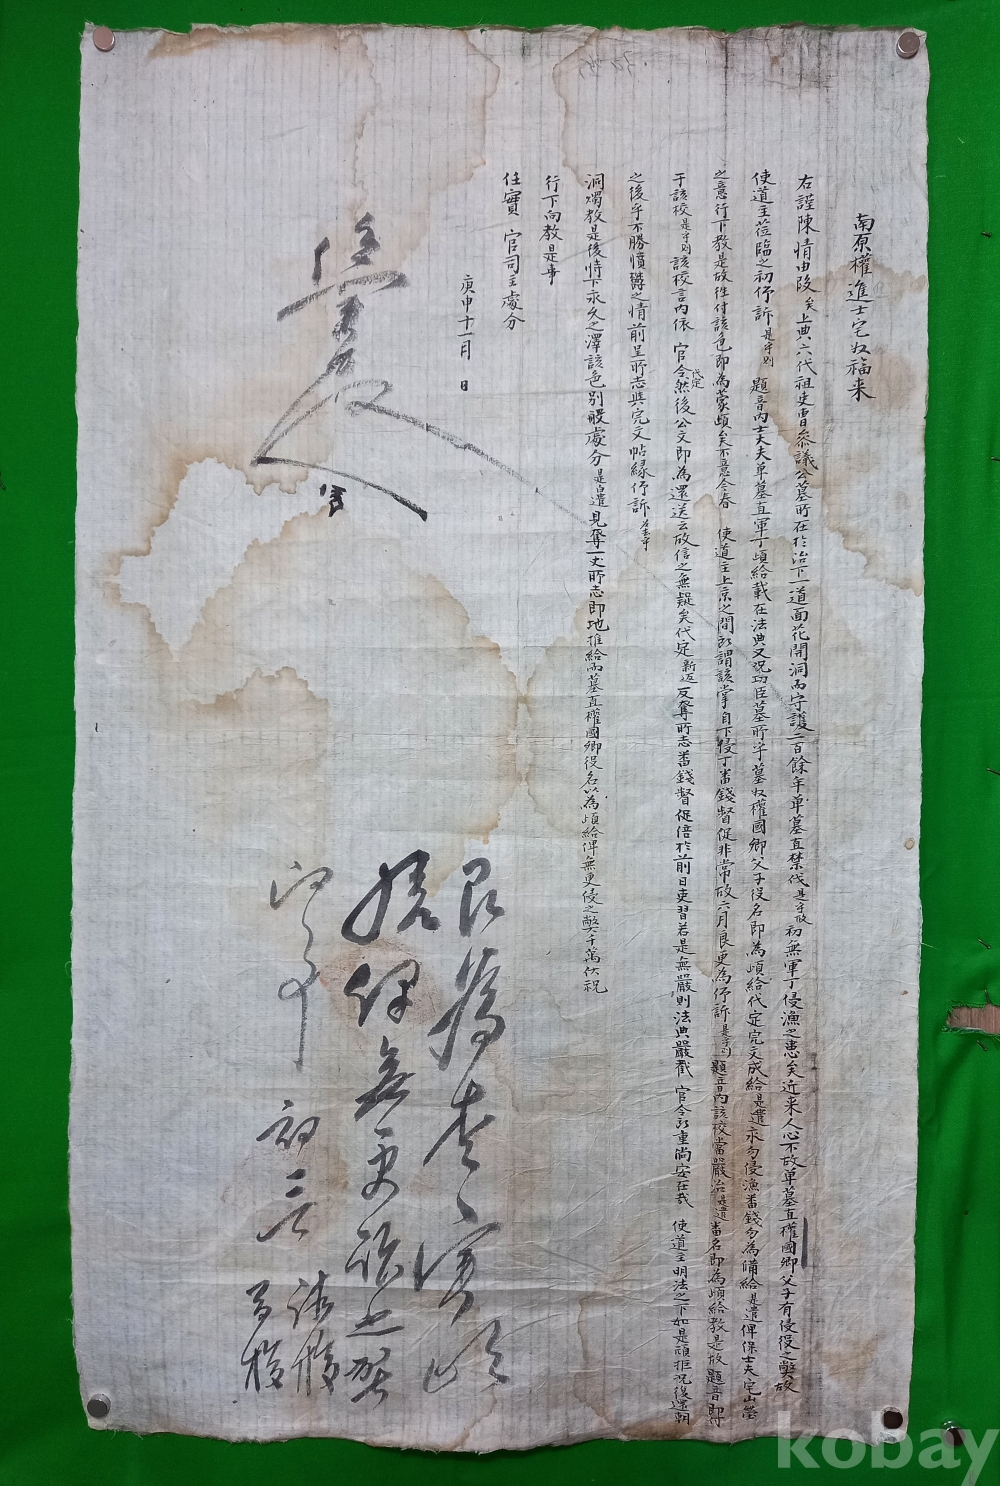 南原權進士宅奴福来
右謹陳情由段矣上典六代祖吏曹參議公墓所在於治下一道面花開洞而守護二百餘年單墓直禁伐是乎故初無軍丁侵漁之患矣近来人心不故單墓直權國鄉父子有侵役之獘故
使道主莅臨之初伻訴是乎則 題音內士夫單墓直軍丁頉給載在法典又況功臣墓所乎墓奴權國鄉父子役名即為頉給代定完文成給是遣永勿侵漁番錢勿為備給是遣俾保士夫宅山塋
之意行下教是故往付該色即為蒙頉矣不意今春 使道主上京之間所謂該掌自下侵丁番錢督促非常故六月良更為伻訴是乎則題音內該校當嚴治是遣番名即為頉給教是故題音即
于該校是乎則該校言內依 官令代定然後公文即為還送云故信之無疑矣代定新返反奪所志番錢督促倍於前日吏習若是無嚴則法典嚴截 官令所重尚安在哉 使道主明法之下如是頑拒況後還朝
之後乎不勝憤鬱之情前呈所志與完文帖緣伻訴
洞燭教是後特下永久之澤該色別般處分是白遣見奪一丈所志即地推給而墓直權國鄉役名以為頉給俾無更侵之獘千萬伏祝
行下向教是事
任實 官司主處分
庚申十一月 日
官
頉俾無更頉之獘
初三
該校